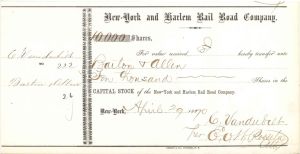 New-York and Harlem Rail Road Company.
10,000 Shares,
For value received, hereby transfer unto
C. Vanderbilt
Barton & Allen
Ten Thousand Shares in the
CAPITAL STOCK of the New-York and Harlem Rail Road Company.
New-York, April 29 1870
C. Vanderbilt